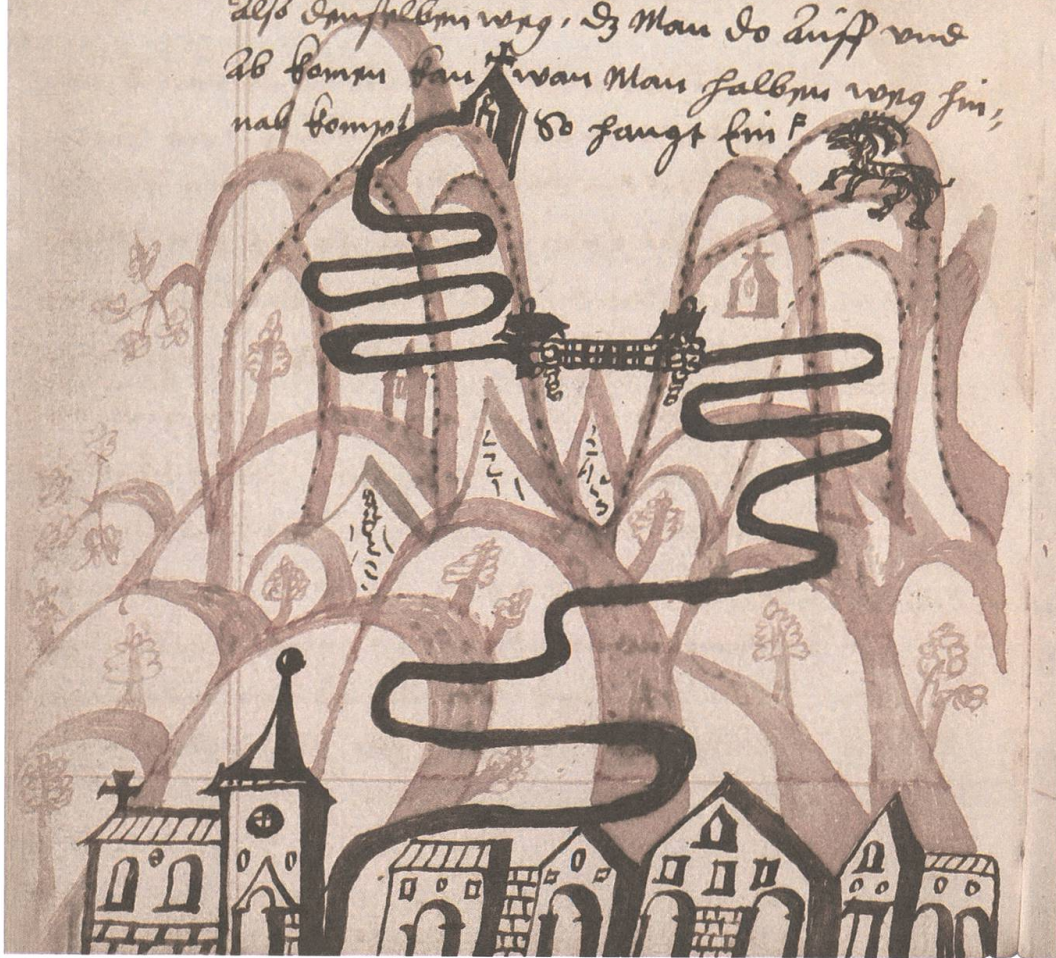 Also denselben weg, dz Man do Auff vnd
Ab komen kan wan Man halben weg hin=
nab kompt So hangt Ein